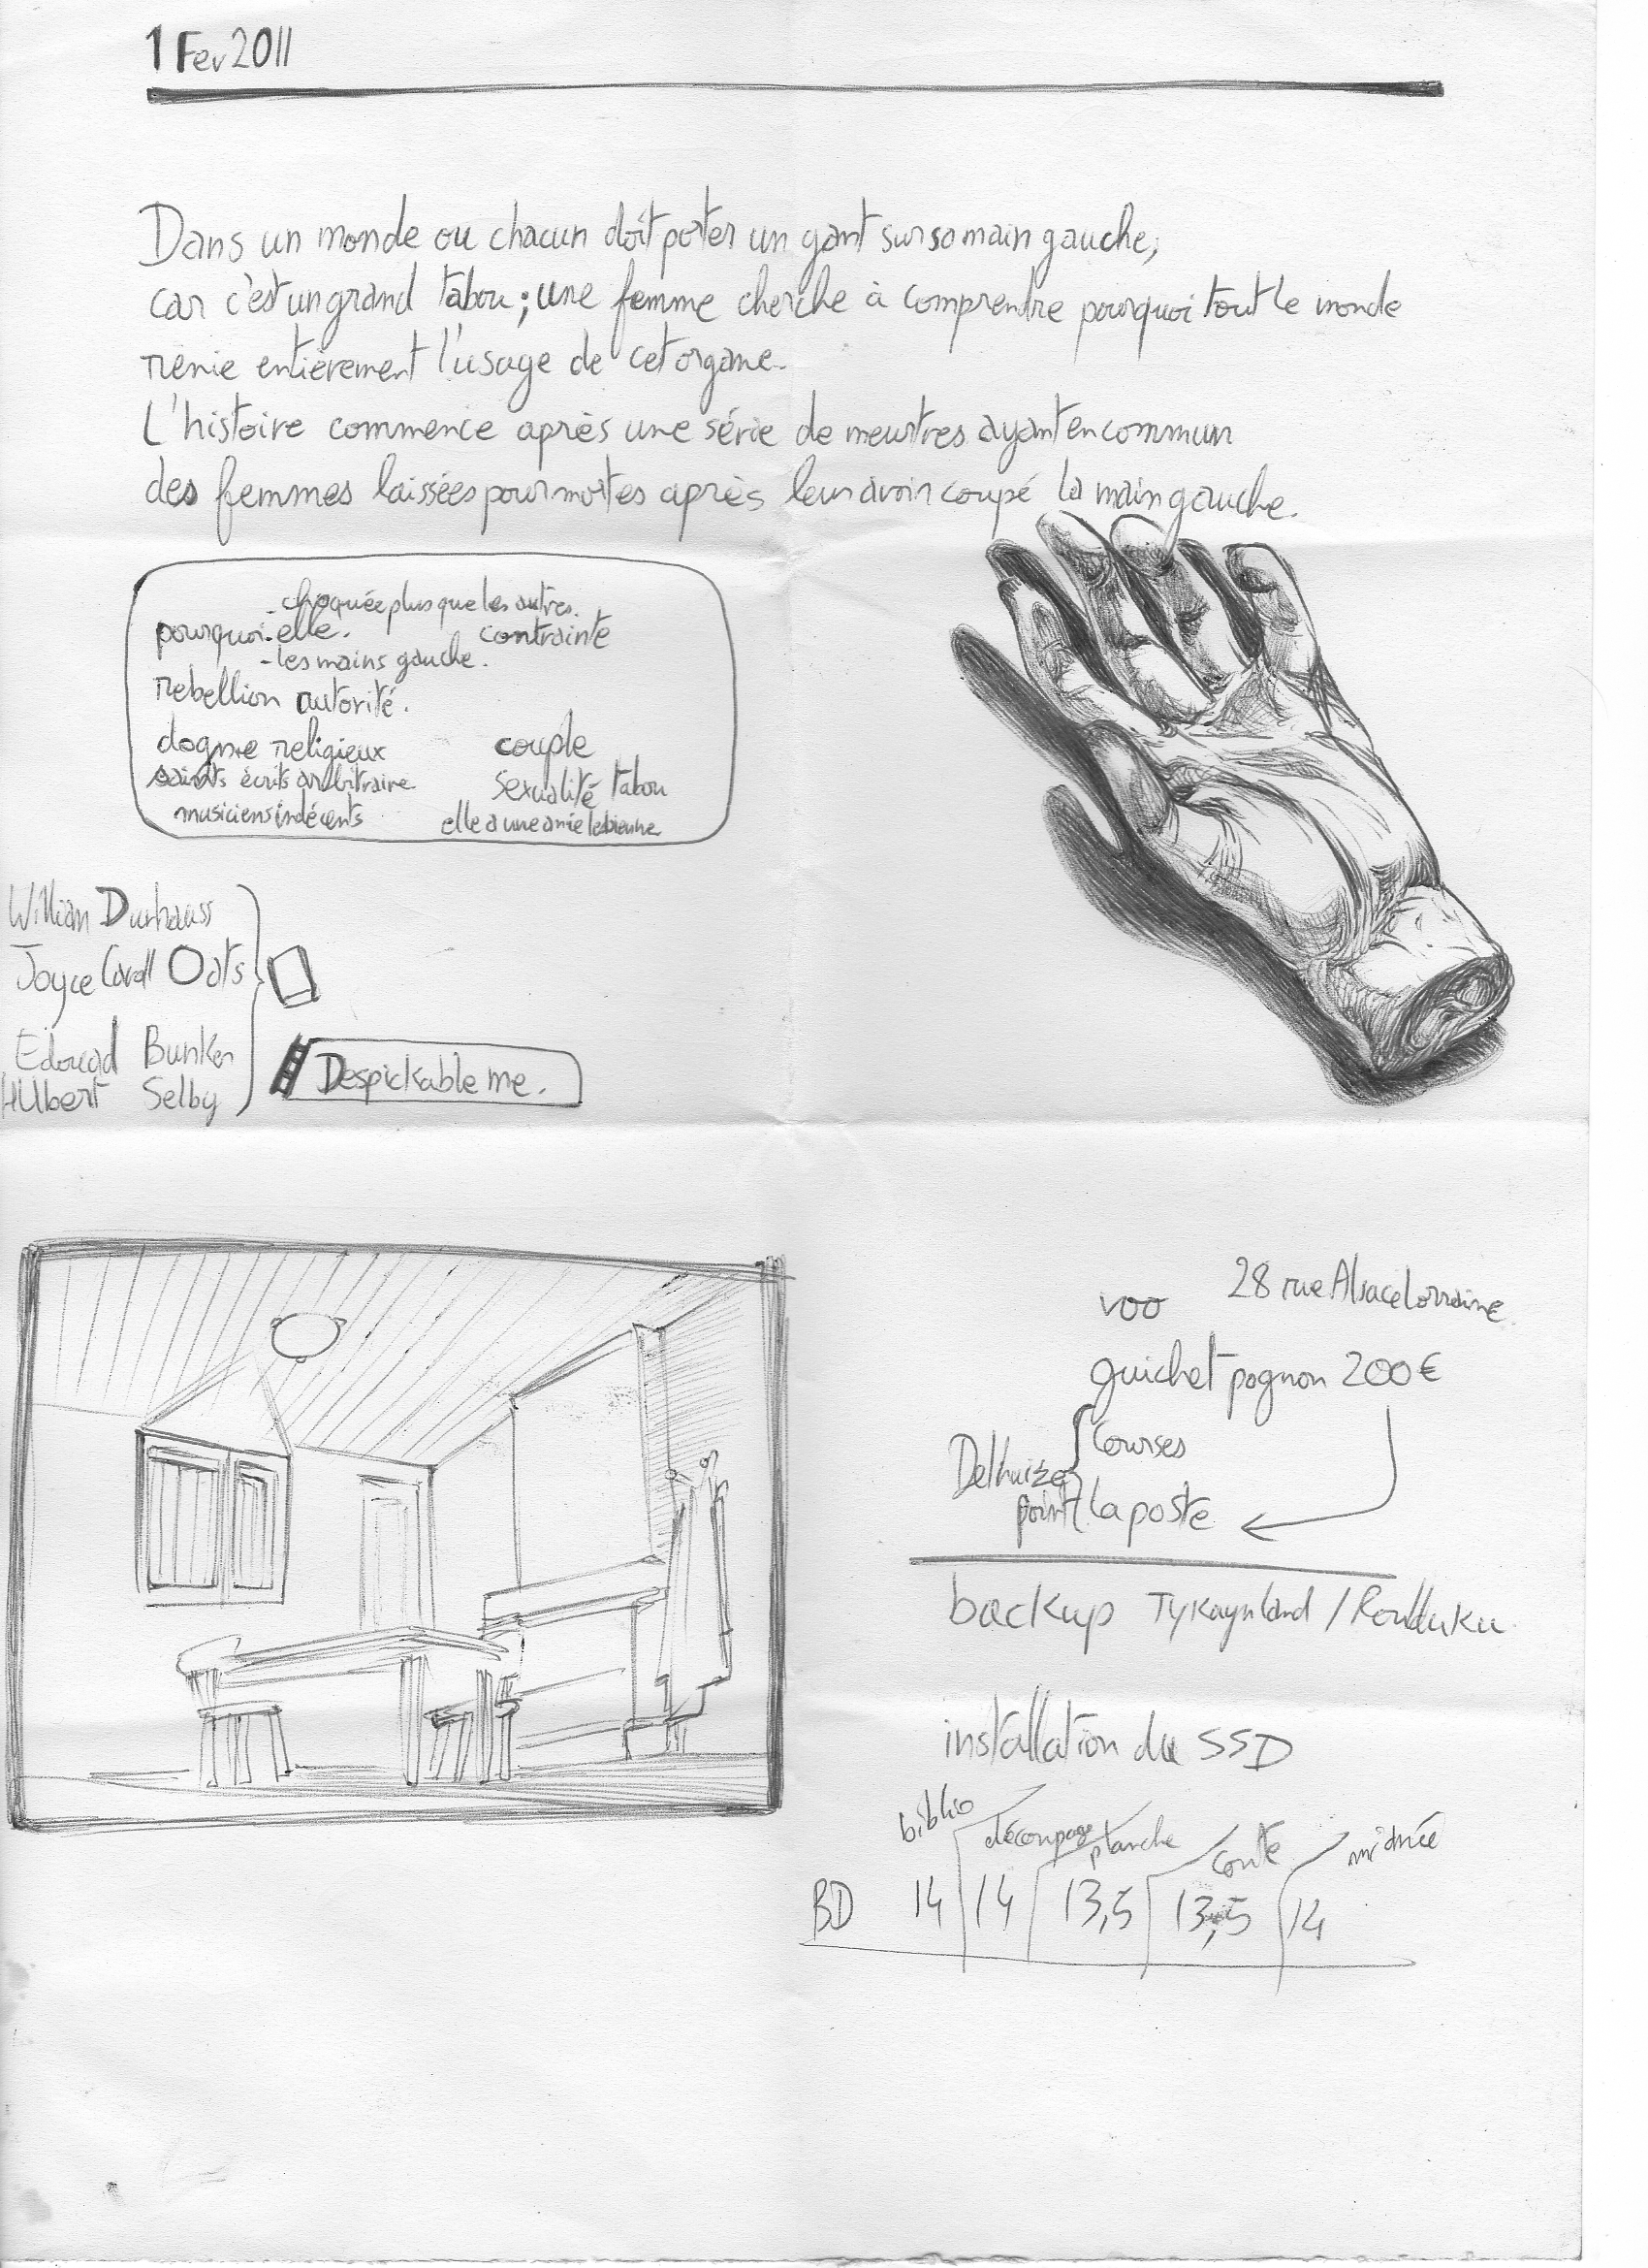 1 Fev 2011
Dans un monde ou chacun doit porter un gant sur sa main gauche,
car c'est un grand tabou ; une femme cherche à comprendre pourquoi tout le monde
renie entièrement l'usage de cet organe.
L'histoire commence après une série de meurtres ayant en commun
des femmes laissées pour mortes après leur avoir coupé la main gauche.
- choquée plus que les autres.
pourquoi - elle. contrainte
- les mains gauche.
rebellion autorité.
dogme religieux couple
saints écrits arbitraire sexualité tabou
musiciens indécents elle a une amie lesbienne
William
Joyce Caroll Oats
Edouard Bunker
Hubert Selby
Despickable me.
voo 28 rue Alsace Lorraine
guichet pognon 200€
Delhaize Courses
point la poste
backup Tykaynland /
installation du SSD
biblio découpage planche conte
BD 14 14 13,5 13,5 14